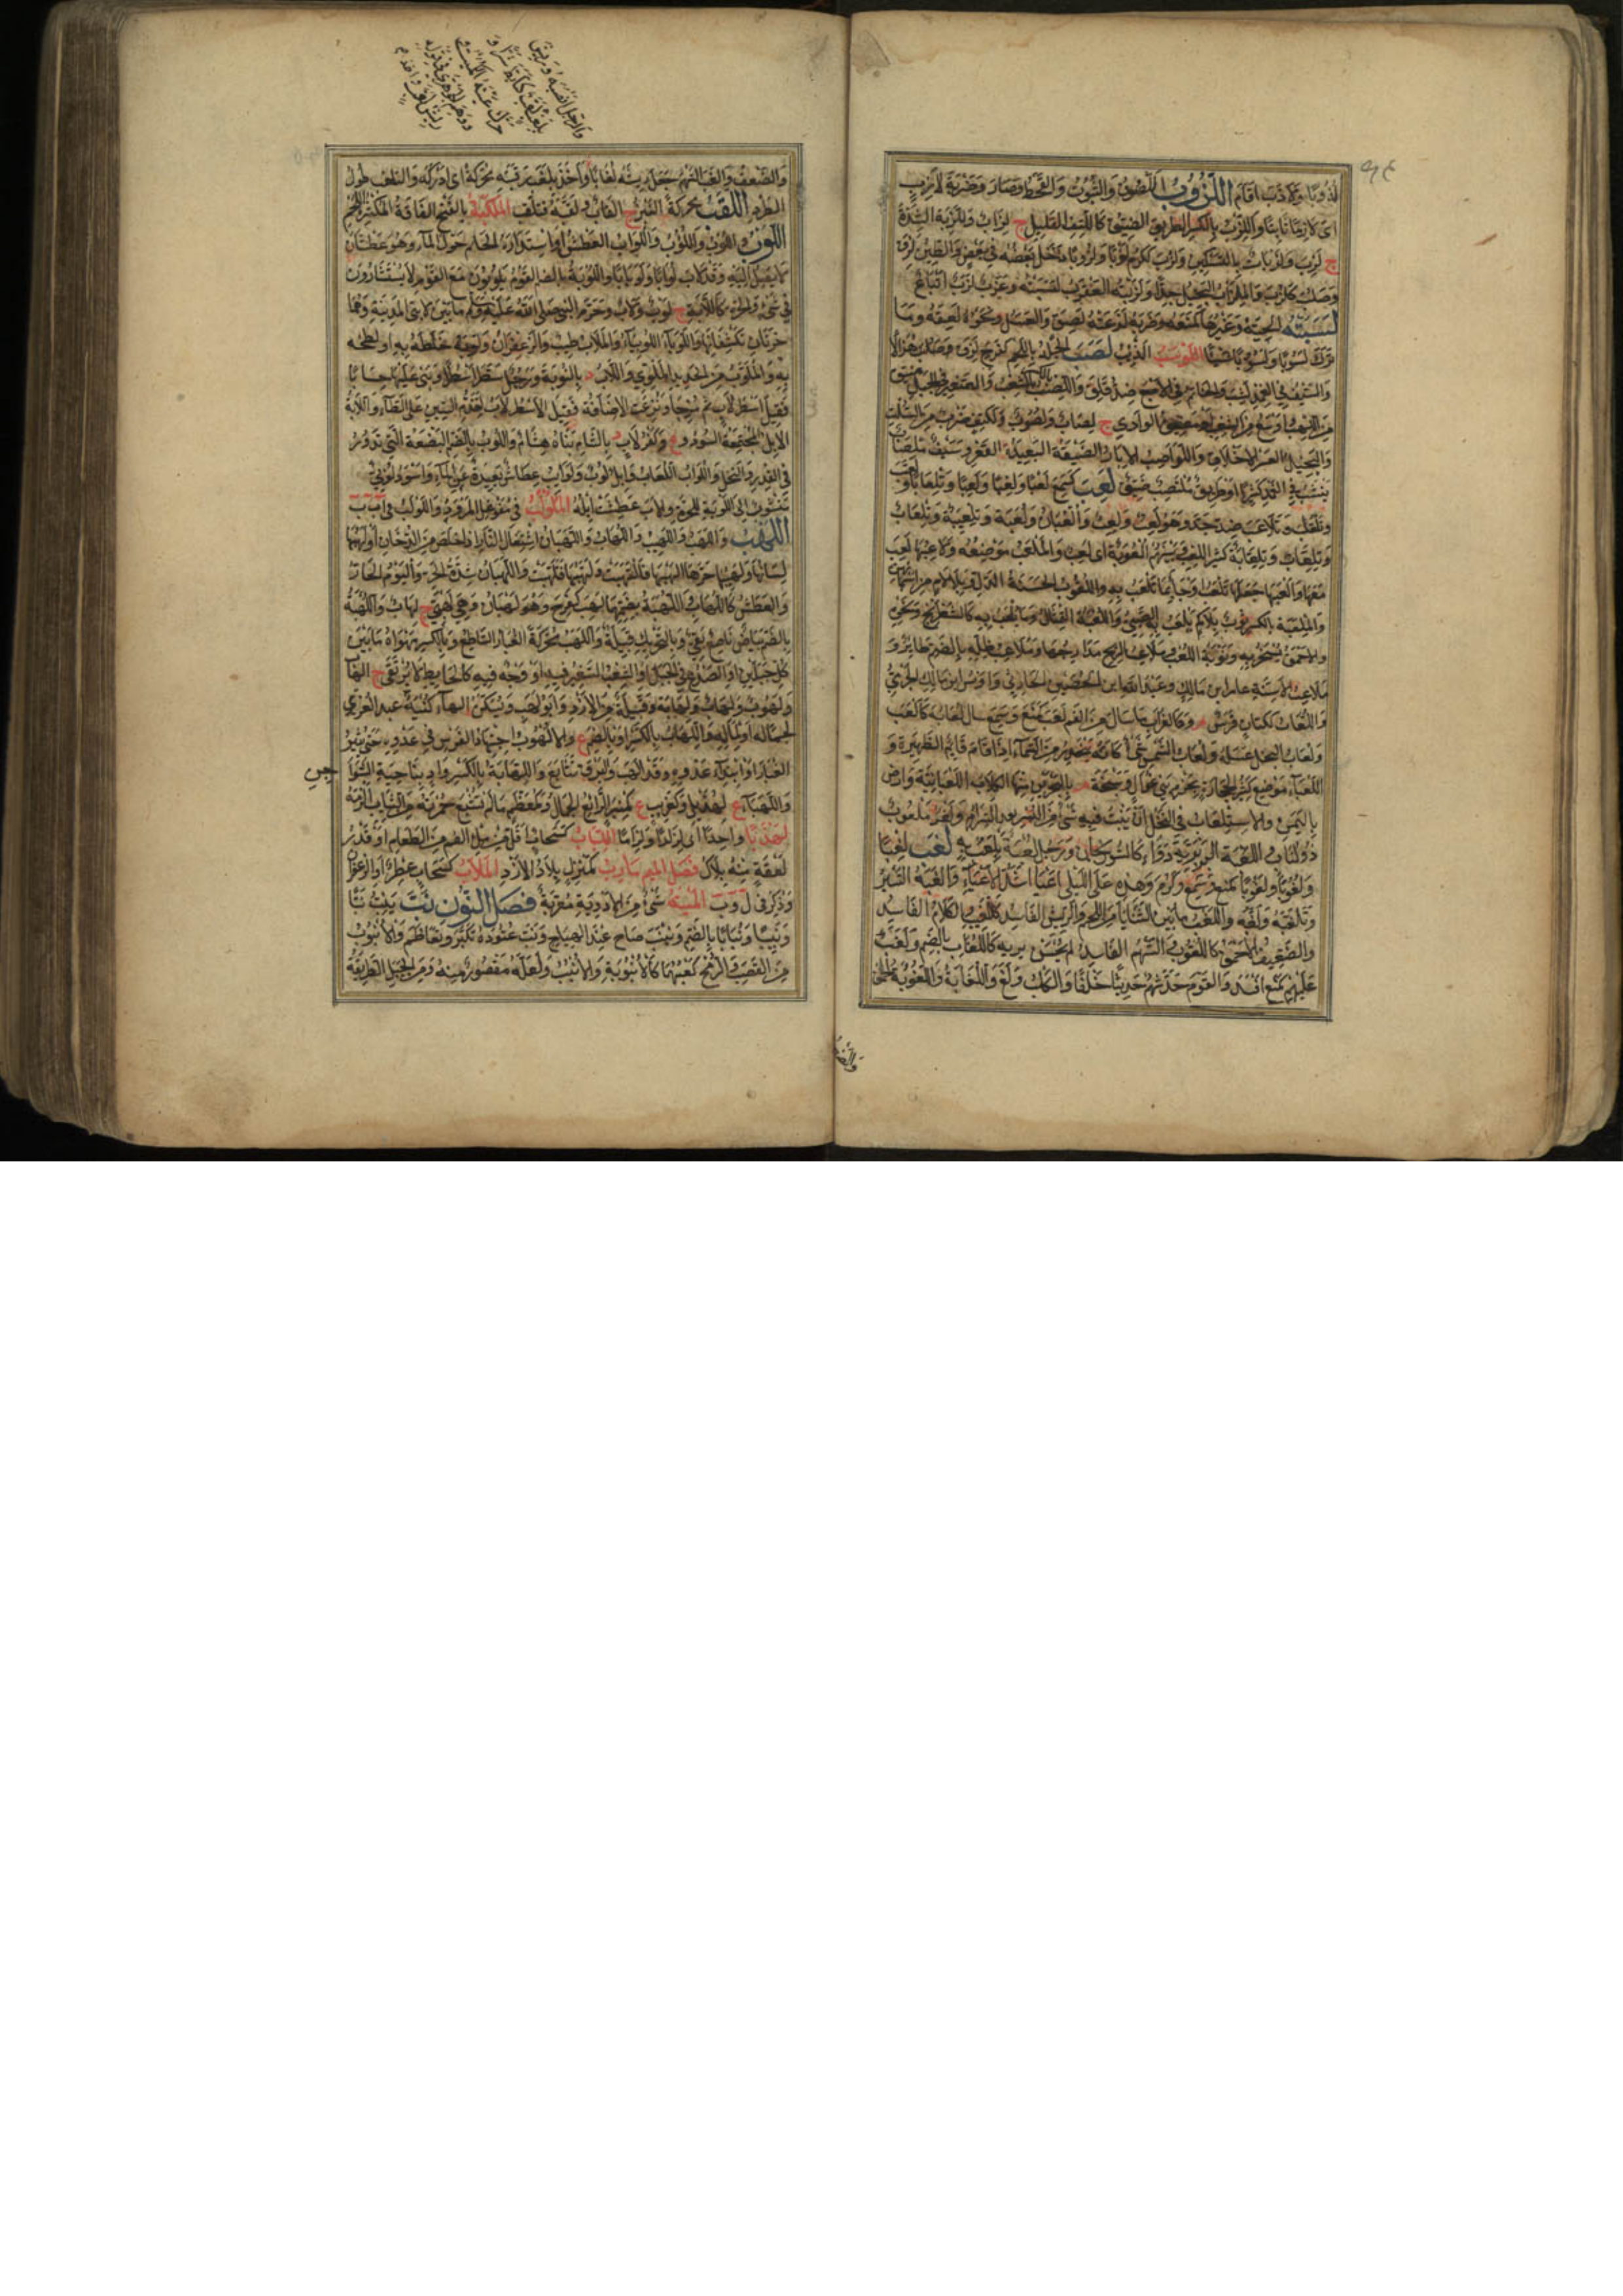 لذوبا ولاذب اقام اللزوب اللصوق والثبوت والقحط وصار ضربة لازب
اى لازما ثابتا واللزب بالكسر الطريق الضيق كاللتب القليل ج لزاب واللزبة الشدة
ج لزب ولزبات بالتسكين ولزب ككرم لزبا ولزوبا دخل بعضه فى بعض والطين لزق
وصلب كلزب والملزاب البخيل جدا ولزبته العقرب لسبته وعزب لزب اتباع
لسبته الحية وغيرها كمنعه وضربه لدغته لصق والعسل ونحوه لعقه وما
ترك لسوبا ولسوبا شيئا اللوشب الذئب لصب الجلد باللحم كفرح لزق وصار هزالا
والسيف فى الغمد نشب والخاتم فى الاصبع ضد قلق واللصب بالكسر الشعب الصغير فى الجبل اضيق
من اللهب واوسع من الشعب او مضيق الوادي ج لصاب ولصوب وككتف ضرب من السلت
والبخيل العسر الاخلاق واللواصب الابار الضيقة البعيدة القعر وسيف ملصاب
ينشب فى الغمد كثيرا وطريق ملتصب ضيق لعب كسمع لعبا ولعبا ولعبا وتلعابا ولعب
وتلعب وتلاعب ضد جد وهو لعب ولعب والعبان ولعبة وتلعيبة وتلعاب
وتلعاب وتلعابة كثير اللعب وبينهم العوبة اى لعب والملعب موضعه ولاعبها لعب
معها والعبها جعلها تلعب وجاءها بما تلعب به واللعوب الحسنة الدل وبلا لام من اسمائهن
والملعبة بالكسر ثوب بلا كم يلعب فيه الصبى واللعبة التمثال وما يلعب به كالشطرنج ونحوه
والاحمق يسخر به ونوبة اللعب وملاعب الريح مدارجها وملاعب ظله بالضم طائر و
ملاعب الاسنة عامر ابن مالك وعبد الله ابن الحصين الحارثى واوس ابن مالك الجرمى
واللعاب ككتان فرس م وكالغراب ما سال من الفم لعب كمنع وسمع سال لعابه كالعب
ولعاب النحل عسله ولعاب الشمس شئ كانه ينحدر من السماء اذا قام قائم الظهيرة و
اللعباء موضع كثير الحجارة بحزم بنى عوال وسبخة م بالبحرين منها الكلاب اللعبانية وارض
باليمن والاستلعاب فى النخل ان ينبت فيه شئ من البسر بعد الصرام وثغر ملعوب
ذو لعاب اللعبة البربرية دواء كالسورنجان ورجل لعبة يلعب به لغب لغبا
ولغوبا ولغوبا كمنع وسمع وكرم وهذه عن اللبلى اعيا اشد الاعياء والغبه السير
وتلغبه ولغبه واللغب ما بين الثنايا من اللحم والريش الفاسد كاللغيب والكلام الفاسد
والضعيف الاحمق كاللغوب والسهم الفاسد لم يحسن بريه كاللغاب بالضم ولغب
عليهم كمنع افسد والقوم حدثهم حديثا خلفا والكلب ولغ واللغابة واللغوبة الحمق
والضعف
والرجل انصبه وريش
بلغب لقب كتابة شرا و
حرك عينه الكميت و
ووهم الجوهري فى قوله
ريش لغب واخذ
والضعف والغب السهم جعل ريشه لغابا واخذ بلغب رقبته محركة اى ادركه والتلغب طول
الطرد اللقب محركة النبز ج القاب ولقبه فتلقب الملكبة بالفتح الناقة المكتنزة اللحم
اللوب واللوب واللؤوب واللواب العطش او استدارة الحائم حول الماء وهو عطشان
لا يصل اليه وقد لاب لوابا ولوبانا واللوبة بالضم القوم يكونون مع القوم لا يستشارون
فى شئ والحرة كاللابة ج لوب ولاب وحرم النبى صلى الله عليه وسلم ما بين لابتى المدينة وهما
حرتان تكتنفانها واللوباء اللوبياء والملاب طيب والزعفران ولوبه خلطه به او لطخه
به والملوب من الحديد الملوي واللاب د بالنوبة ورجل سطر اسطرا وبنى عليها حسابا
فقيل اسطرلاب ثم مزجا ونزعت الاضافة فقيل الاسطرلاب لتقدم السين على الطاء واللابة
الابل المجتمعة السود و ع وكفرلاب د بالشام بناه هشام واللوب بالضم البضعة التى تدور
فى القدر والنحل واللواب اللعاب وابل لوب ولوائب عطاش بعيدة عن الماء واسود لوبى
منسوب الى اللوبة للحرة والاب عطشت ابله المكوكب فى مفوعل المرود واللولب فى ا ب ب
اللهب واللهب واللهيب واللهاب واللهبان اشتعال النار اذا خلص من الدخان او لهبها
لسانها ولهيبها حرها الهبها فالتهبت ولهبها فتلهبت واللهبان شدة الحر واليوم الحار
والعطش كاللهاب واللهبة بضمهما لهب كفرح وهو لهبان وهى لهبى ج لهاب واللهبة
بالضم بياض ناصع نقى وبالتحريك قبيلة واللهب محركة الغبار الساطع وبالكسر مهواة ما بين
كل جبلين او الصدع فى الجبل او الشعب الصغير فيه او وجه فيه كالحائط لا يرتقى ج الهاب
ولهوب ولهاب ولهابة وقبيلة من الازد وابو لهب وتسكن الهاء كنية عبد العزى
لجماله او لماله واللهاب بالكسر او بالضم ع والالهوب اجتهاد الفرس فى عدوه حتى يثير
الغبار او ابتداء عدوه وقد الهب والبرق تتابع واللهابة بالكسر واد بناحية الشواجن
واللهباء ع لهذيل وكقريب ع كمنبر الرائع الجمال وكمعظم ما لم تشبع حمرته من الثياب الزمه
لهذبا واحدا اى لزازا ولزاما اللياب كسحاب اقل من ملء الفم من الطعام او قدر
لعقة منه يلاك فصل الميم مأرب كمنزل بلاد الازد الملاب كسحاب عطر او الزعفران
وذكر فى ل و ب الميبة شئ من الادوية معربة فصل النون نب ينب نبا
ونبيبا ونبابا بالضم ونبنب صاح عند الهياج ونب عتوده تكبر وتعاظم والانبوب
من القصب والرمح كعبهما كالانبوبة والانبب ولعله مقصور منه ومن الجبل الطريقة